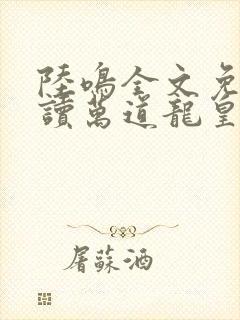 陸鳴全文免
讀萬道龍皇
屠蘇酒